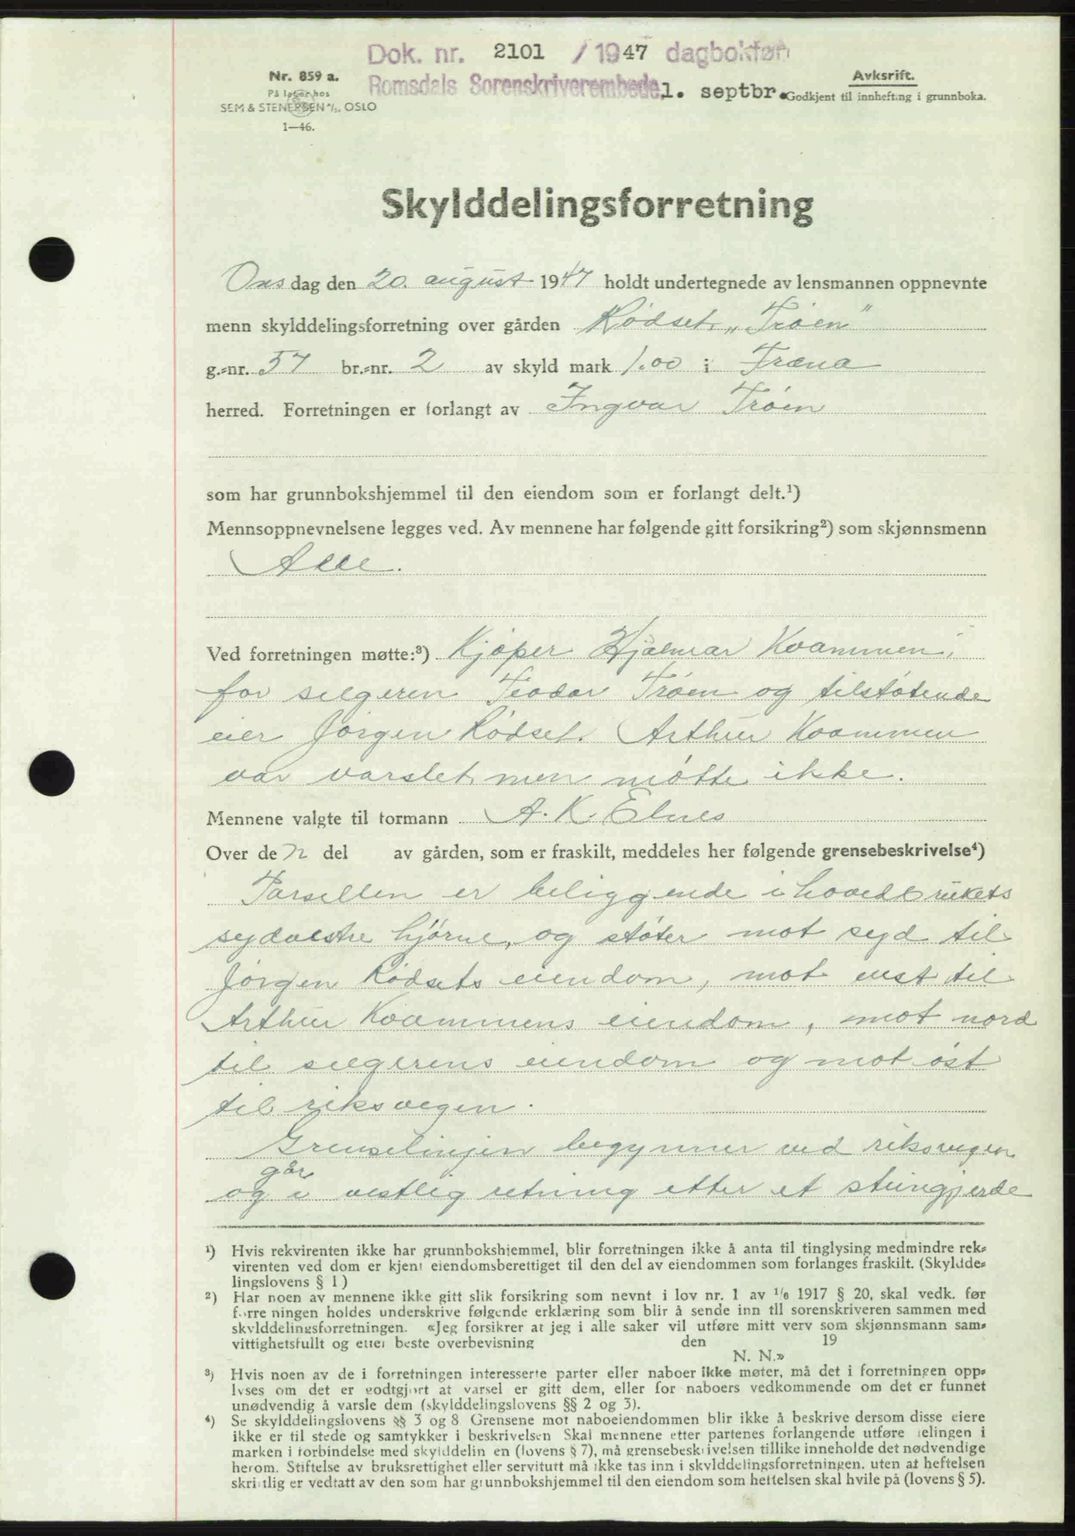 Dok. nr. 2101 / 1947 dagboken
Romsdals Sorenskriverembede 1. septbr.
Nr. 859 a.
På lager hos
SEM & STENERSEN A/S, OSLO
1—46.
Avksrift.
Godkjent til innhefting i grunnboka.
Skylddelingsforretning
Onsdag den 20. august 1947 holdt undertegnede av lensmannen oppnevnte
menn skylddelingsforretning over gården Rødset „Trøen"
g.=nr. 57 br.=nr. 2 av skyld mark 1.00 i Fræna
herred. Forretningen er forlangt av Ingvar Trøen
som har grunnbokshjemmel til den eiendom som er forlangt delt.¹)
Mennsoppnevnelsene legges ved. Av mennene har følgende gitt forsikring²) som skjønnsmenn
Alle.
Ved forretningen møtte:³) Kjøper Hjalmar Kvammen,
for selgeren Teodor Trøen og tilstøtende
eier Jørgen Rødset. Arthur Kvammen
var varslet, men møtte ikke.
Mennene valgte til formann A. K. Elnes
Over den del av gården, som er fraskilt, meddeles her følgende grensebeskrivelse⁴)
Parsellen er beliggende i hovedbrukets
sydvestre hjørne, og støter mot syd til
Jørgen Rødsets eiendom, mot vest til
Arthur Kvammens eiendom, mot nord
til selgerens eiendom og mot øst
til riksvegen.
Grenselinjen begynner ved riksvegen
og går i vestlig retning etter et steingjerde
¹) Hvis rekvirenten ikke har grunnbokshjemmel, blir forretningen ikke å anta til tinglysing medmindre rek=
virenten ved dom er kjent eiendomsberettiget til den del av eiendommen som forlanges fraskilt. (Skyldde=
lingslovens § 1)
²) Har noen av mennene ikke gitt slik forsikring som nevnt i lov nr. 1 av 1/6 1917 § 20, skal vedk. før
forretningen holdes underskrive følgende erklæring som blir å sende inn til sorenskriveren sammen med
skylddelingsforretningen. «Jeg forsikrer at jeg i alle saker vil utføre mitt verv som skjønnsmann sam=
vittighetsfullt og etter beste overbevisning den 19
N. N.»
³) Hvis noen av de i forretningen interesserte parter eller naboer ikke møter, må det i forretningen opp=
lyses om det er godtgjort at varsel er gitt dem, eller for naboers vedkommende om det er funnet
unødvendig å varsle dem (skylddelingslovens §§ 2 og 3).
⁴) Se skylddelingslovens §§ 3 og 8 Grensene mot naboeiendommen blir ikke å beskrive dersom disse eiere
ikke er til stede og samtykker i beskrivelsen Skal mennene etter partenes forlangende utføre delingen i
marken i forbindelse med skylddelingen (lovens § 7), må grensebeskrivelsen tillike inneholde det nødvendige
herom. Stiftelse av bruksrettighet eller servitutt må ikke tas inn i skylddelingsforretningen. uten at heftelsen
skriftlig er vedtatt av den som har grunnbokshjemmel til den eiendom som heftelsen skal hvile på (lovens § 5).